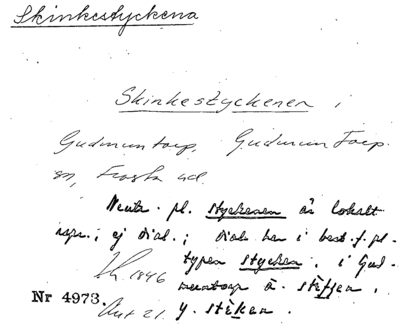 Skinkestyckena
Skinkestyckenen i
Gudmuntorp, Gudmuntorp
sn, Frosta hd.
Neutr. pl. styckenen är lokalt
upr.; ej dial.; dial. har i best. f. pl.
typen stycken. i Gud-
1946 muntorp ä.
Nr 4973. y.